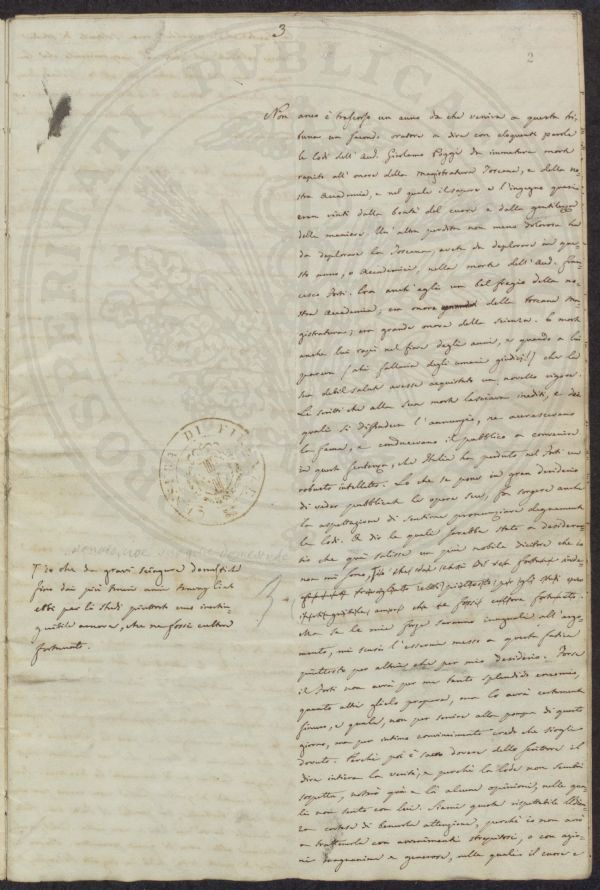 3
2
Non anco è trascorso un anno da che veniva a questa tri-
buna un facondo oratore a dire con eloquenti parole
le lodi dell'Aud. Girolamo Poggi da immatura morte
rapito all'onore della magistratura Toscana, e della no-
stra Accademia, e nel quale il sapere e l'ingegno quasi
eran vinti dalla bontà del cuore e dalla gentilezza
delle maniere. Un'altra perdita non meno dolorosa ha
da deplorare la Toscana, avete da deplorare in que-
sto anno, o Accademici, nella morte dell'Aud. Fran-
cesco Forti. Era anch'egli un bel fregio della no-
stra Accademia, era onore della toscana ma-
gistratura, era grande onore della scienza. E morte
anche lui rapì nel fiore degli anni, e quando a lui
pareva (ahi fallacia degli umani giudizi!) che la
sua debil salute avesse acquistato un novello vigore.
Le scritti che alla sua morte lasciava inediti, e dei
quali si diffondeva l'annunzio, ne accrescevano
la fama, e conducevano il pubblico a convenire
in questa sentenza, che Italia ha perduto nel Forti un
robusto intelletto. Lo che se pone in gran desiderio
di veder pubblicate le opere sue, fa sorgere anche
la aspettazione di sentirne pronunziare degnamente
le lodi. E di le quali sarebbe stato a desiderare
che quì salisse un più nobile dicitore che io
non mi sono,
che ne fossi cultore fortunato.
Ma se le mie forze saranno ineguali all'argo-
mento, mi scusi l'essermi messo a questa fatica
piuttosto per altrui che per mio desiderio. Forse
il Forti non avrà per me tanto splendido encomio,
quanto altri glielo propose, ma lo avrà certamente
sincero, e quale, non per servire alla pompa di questo
giorno, ma per intimo convincimento credo che
dovuto. Perchè poi è sacro dovere dello scrittore il
dire intiera la verità, e perchè la lode non sembri
sospetta, noterò quà e là alcune opinioni, nelle qua-
li non sento con lui. Siami questa rispettabile Udien-
za cortese di benevola attenzione, perchè io non avrò
a trattenerla con avvenimenti strepitosi, o con azio-
ni magnanime e generose, nelle quali il cuore e
io che da gravi sciagure domestiche
fino dai più
ebbi per li studi piuttosto una inestin-
guibile amore, che ne fossi cultore
fortunato.
PROSPERITATI PUBLICAE